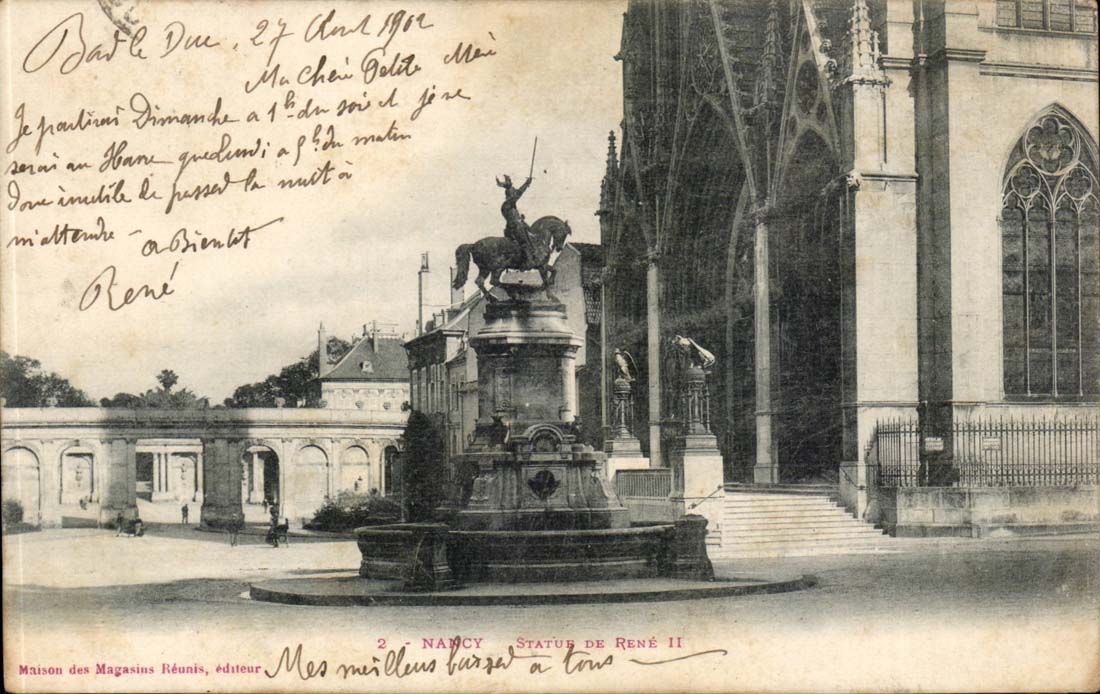 Bar le Duc, 27 Aout 1902
Ma Cheré Petite Méré
Je partirai Dimanche a 1h. du soir et je ne
serai au Havre que Lundi a 9h. du matin
Donc inutile de passer la nuit à
m'attendre - a Bientot
René
2 - NANCY Statue de René II
Maison des Magasins Réunis, éditeur
Mes meilleurs baisers a tous